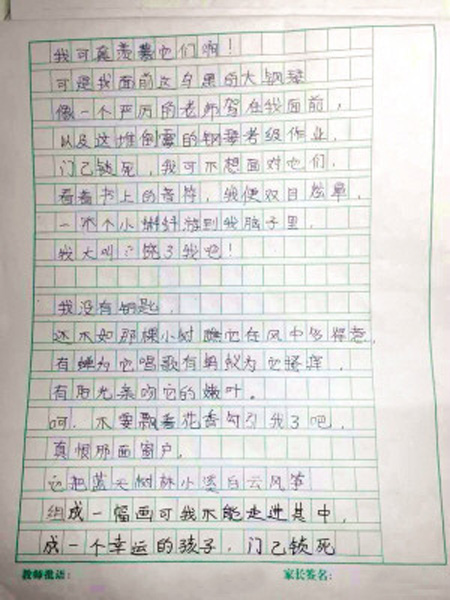 我可真羡慕它们啊！
可是我面前这乌黑的大钢琴
像一个严厉的老师驾在我面前，
以及这堆倒霉的钢琴考级作业，
门已锁死，我可不想面对它们，
看着书上的音符，我便双目
一个个小蝌蚪游到我脑子里，
我大叫：饶了我吧！
我没有钥匙，
还不如那棵小树瞧它在风中多惬意，
有蝉为它唱歌有蚂蚁为它挠痒，
有阳光亲吻它的嫩叶。
呵，不要飘着花香勾引我了吧，
真恨那面窗户，
它把蓝天树林小溪白云风筝
组成一幅画可我不能走进其中，
成一个幸运的孩子，门已锁死
教师批语：
家长签名：